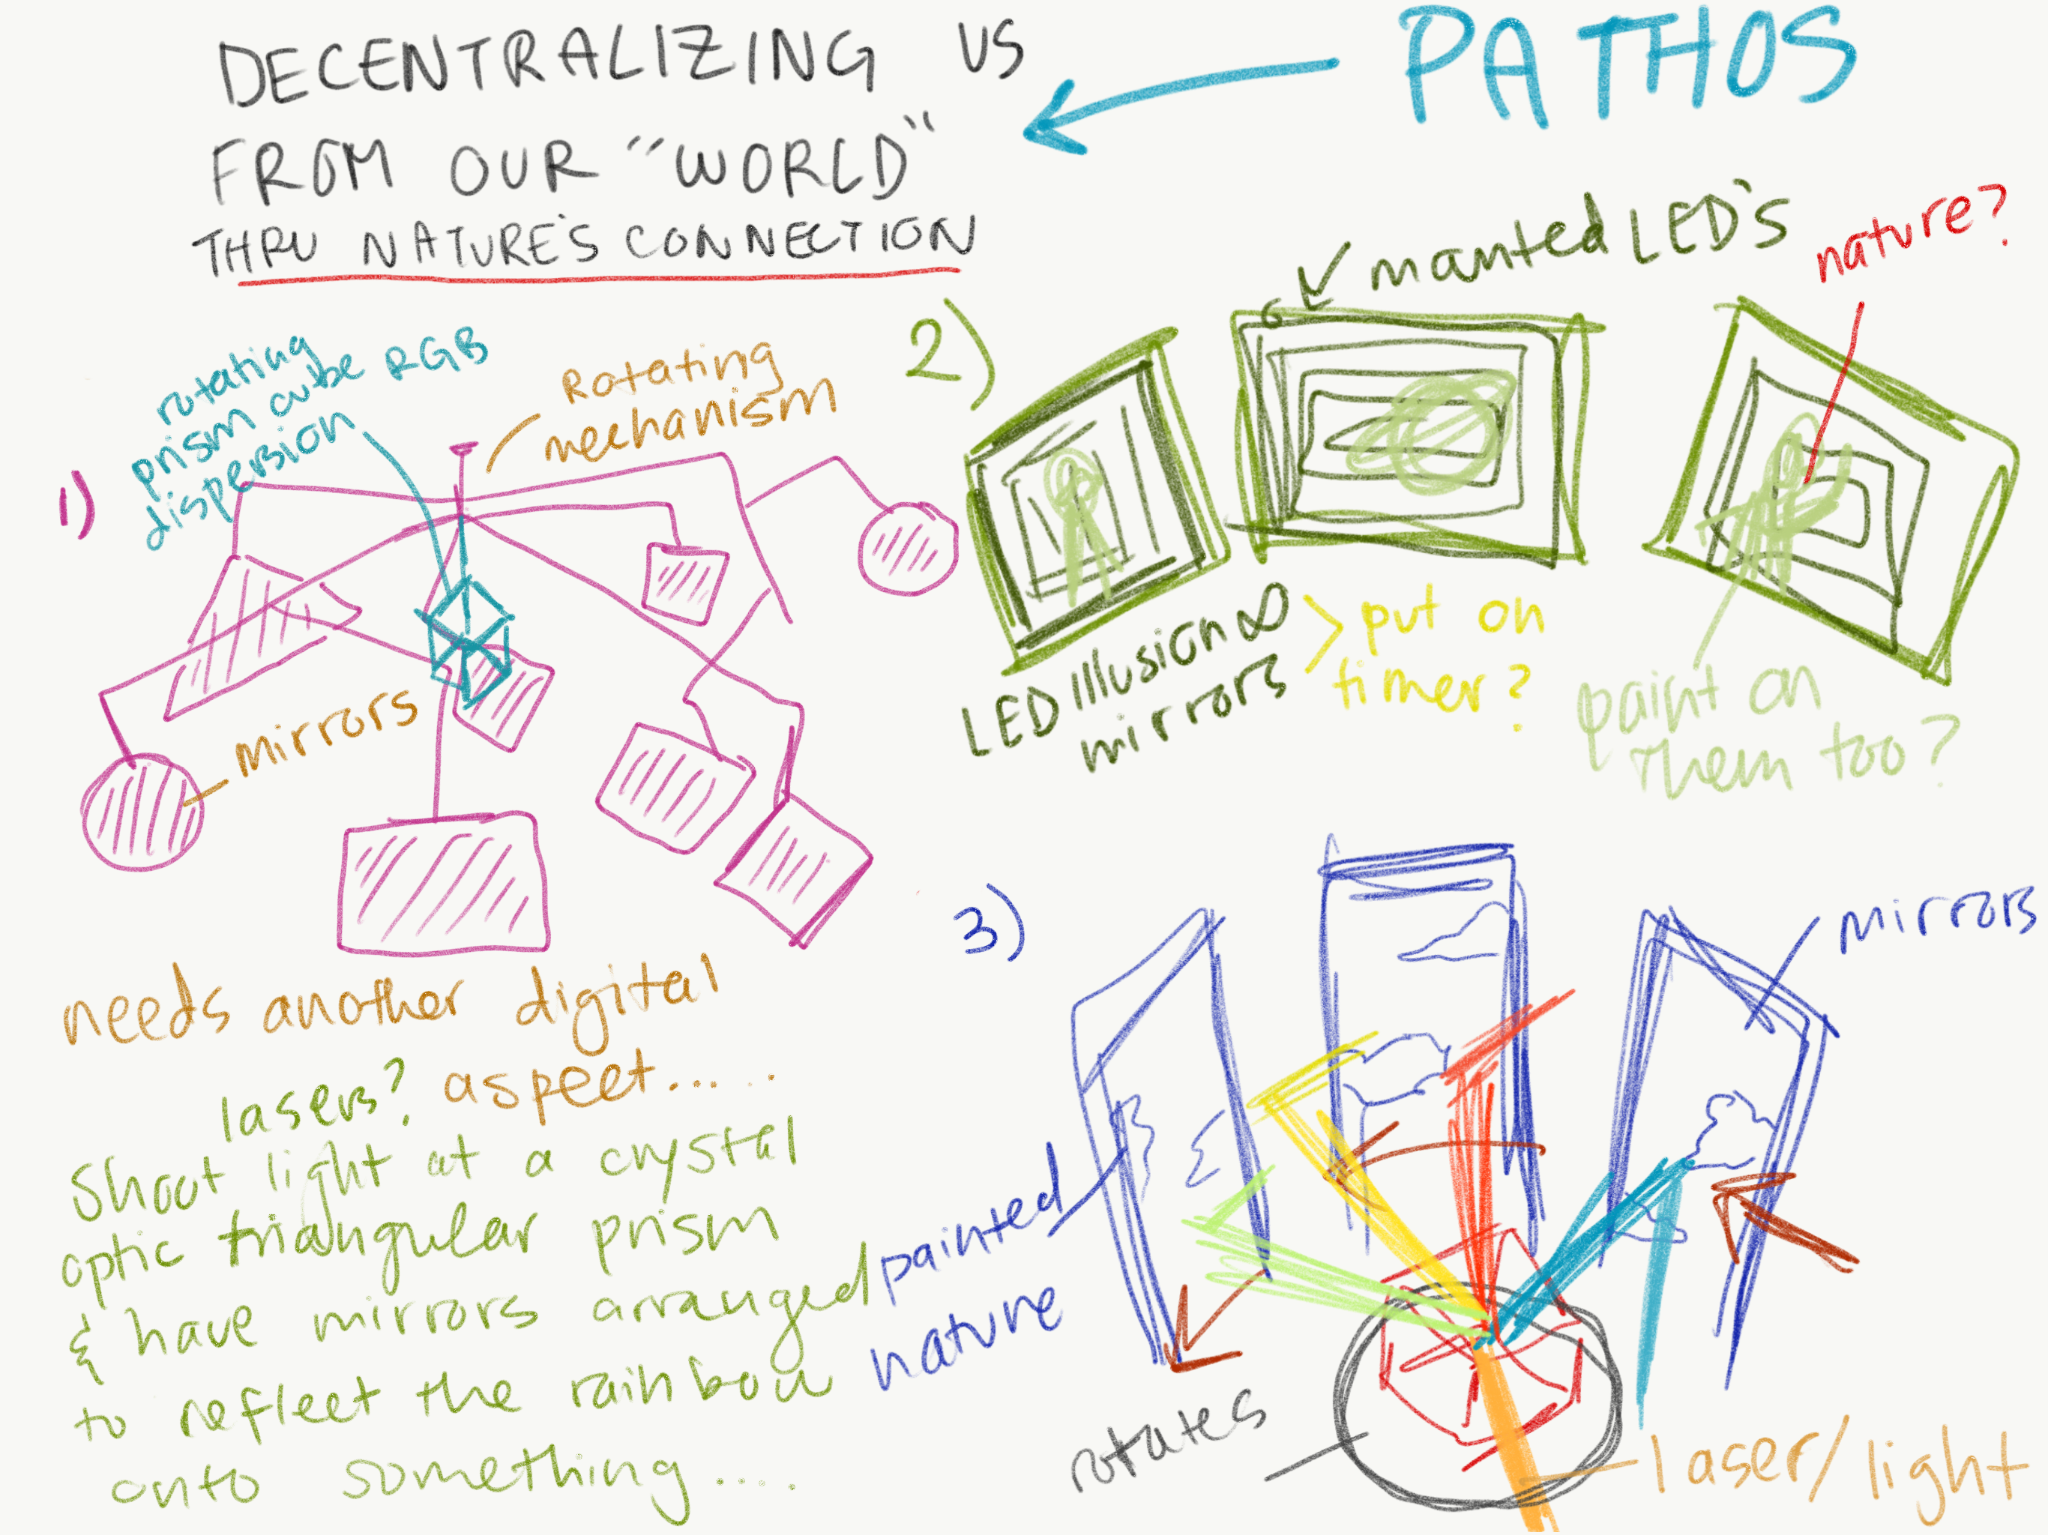 DECENTRALIZING US
FROM OUR "WORLD"
THRU NATURE'S CONNECTION
PATHOS
1)
rotating
prism cube RGB
dispersion
Rotating
mechanism
mirrors
needs another digital
aspect.....
lasers?
Shoot light at a crystal
optic triangular prism
& have mirrors arranged
to reflect the rainbow
onto something....
2)
manted LED's
nature?
LED Illusion ∞
mirrors
> put on
timer?
paint on
them too?
3)
mirrors
painted
nature
rotates
laser/light